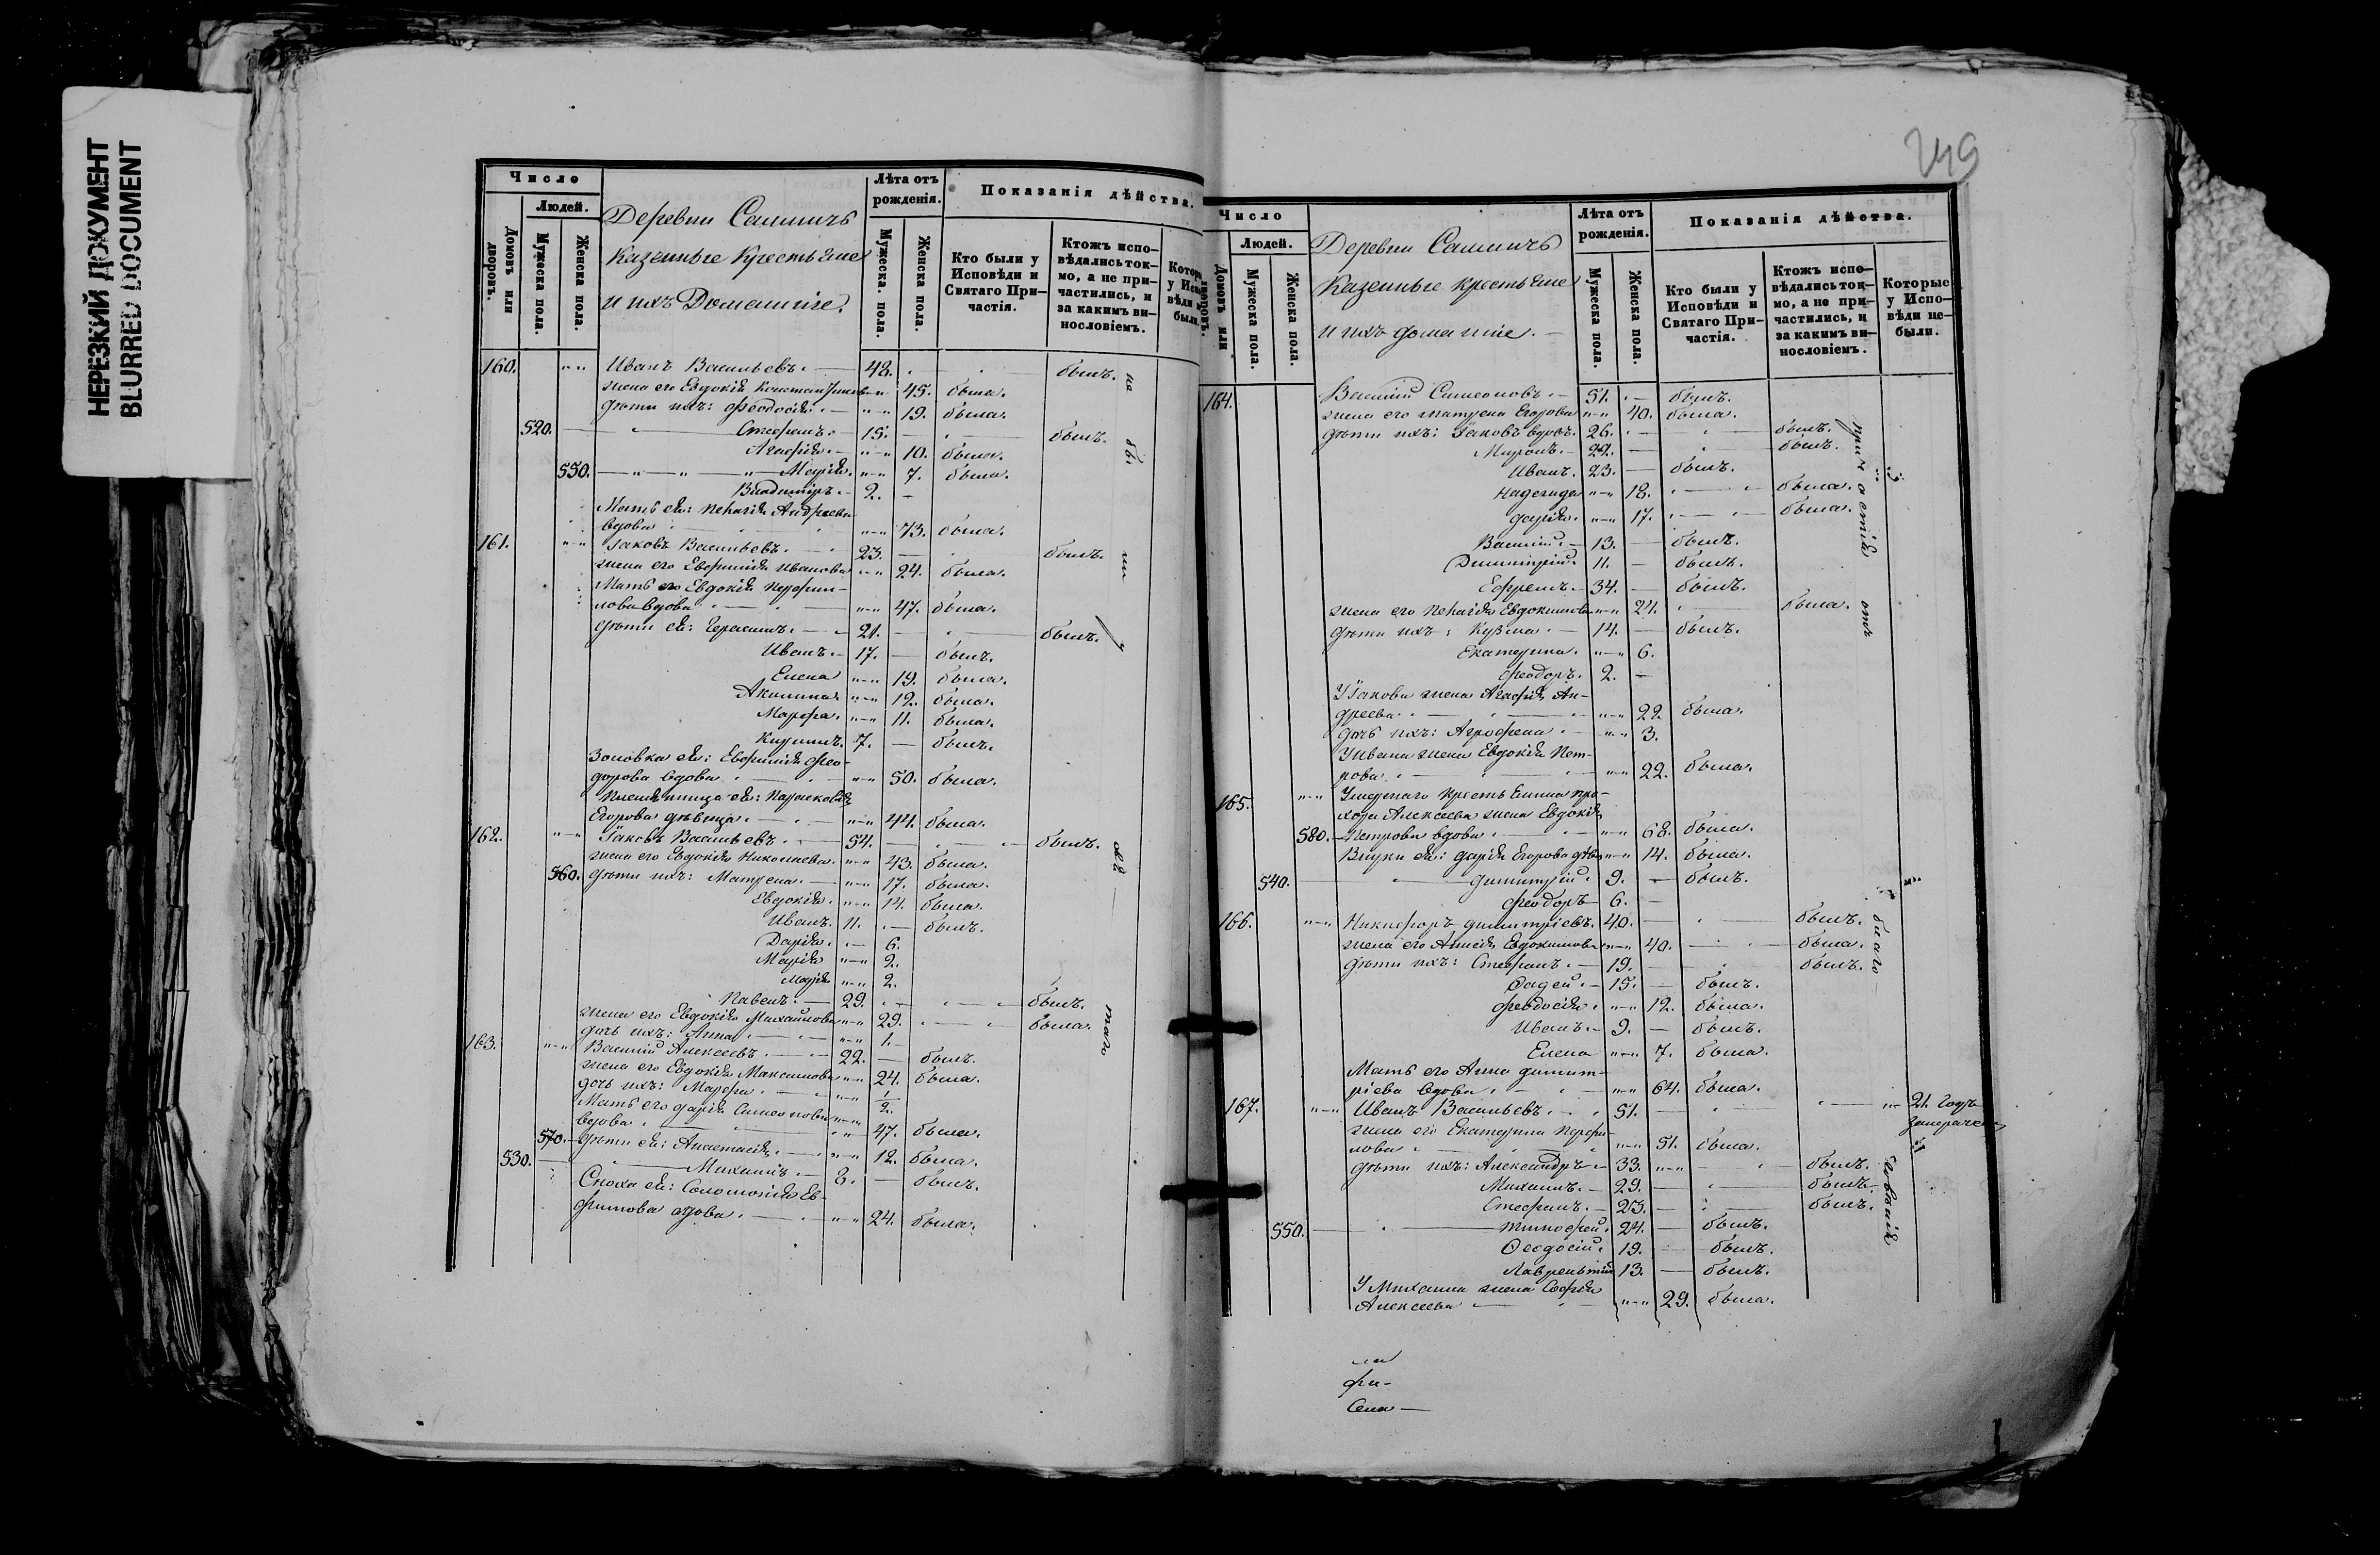 НЕРЕЗКИЙ ДОКУМЕНТ
BLURRED DOCUMENT
Число
Людей.
Домовъ или дворовъ.
Мужеска пола.
Женска пола.
Деревни
Казенные Крестьяне
и ихъ Домашніе.
Лѣта отъ рожденія.
Мужеска пола.
Женска пола.
Показанія дѣйства.
Кто были у Исповѣди и Святаго Причастія.
Ктожъ исповѣдались токмо, а не причастились, и за какимъ винословіемъ.
160. Иванъ Васильевъ. 48. былъ.
жена его Евдокія 45. была.
дѣти ихъ: Феодосія 19. была.
520. Стефанъ. 15. былъ.
Агафія. 10. была.
550. Марія. 7. была.
Владимиръ. 2.
Мать ея: Пелагія Андреева
вдова 73. была.
161. Іаковъ Васильевъ. 23. былъ.
жена его Евфимія Иванова 24. была.
Мать его Евдокія
вдова. 47. была.
дѣти ея: Герасимъ. 21. былъ.
Иванъ. 17. былъ.
Елена 19. была.
Акилина 12. была.
Марфа. 11. была.
Кириллъ. 7. былъ.
Золовка ея: Евфимія Фео-
дорова вдова 50. была.
Племянница ея: Парасковія
Егорова дѣвица. 44. была.
162. Іаковъ Васильевъ. 54. былъ.
жена его Евдокія Николаева. 43. была.
560. дѣти ихъ: Матрена. 17. была.
Евдокія. 14. была.
Иванъ. 11. былъ.
Дарія. 6.
Марія 2.
Марія 2.
Павелъ. 29. былъ.
жена его Евдокія Михайлова 29. была.
дочь ихъ: Анна. 1.
163. Василій Алексеевъ. 22. былъ.
жена его Евдокія Максимова 24. была.
дочь ихъ: Марфа. 1/2.
Мать его Дарія Симеонова
вдова. 47. была.
570. дѣти ея: Анастасія. 12. была.
530. Михаилъ. 8. былъ.
Сноха ея: Соломонія Ев-
фимова вдова. 24. была.
249
Число
Людей.
Домовъ или дворовъ.
Мужеска пола.
Женска пола.
Деревни
Казенные крестьяне
и ихъ домашніе.
Лѣта отъ рожденія.
Мужеска пола.
Женска пола.
Показанія дѣйства.
Кто были у Исповѣди и Святаго Причастія.
Ктожъ исповѣдались токмо, а не причастились, и за какимъ винословіемъ.
Которые у Исповѣди небыли.
164. Василій Симеоновъ. 51. былъ.
жена его Матрена Егорова 40. была.
дѣти ихъ: Іаковъ 26. былъ.
Миронъ. 22. былъ.
Иванъ. 23. былъ.
Надежда 18. была.
Дарія. 17. была.
Василій. 13. былъ.
Димитрій. 11. былъ.
Ефремъ. 34. былъ.
жена его Пелагія Евдокимова 24. была.
дѣти ихъ: Кузма. 14. былъ.
Екатерина. 6.
Феодоръ. 2.
У Іакова жена Агафія Ан-
дреева. 22. была.
дочь ихъ: Агрофена 3.
У Ивана жена Евдокія Пет-
рова. 22. была.
165. Умершаго Крестьянина Про-
хора Алексеева жена Евдокія
580. Петрова вдова 68. была.
Внуки ея: Дарія Егорова 14. была.
540. Димитрій. 9. былъ.
Феодоръ 6.
166. Никифоръ Димитріевъ. 40. былъ.
жена его Анисія Евдокимова 40. была.
дѣти ихъ: Стефанъ. 19. былъ.
Фадей. 15. былъ.
Феодосія. 12. была.
Иванъ. 9. былъ.
Елена 7. была.
Мать его Анна Димит-
ріева вдова. 64. была.
167. Иванъ Васильевъ. 51. 21. годъ
жена его Екатерина
51. была.
дѣти ихъ: Александръ 33. былъ.
Михаилъ. 29. былъ.
Стефанъ. 23. былъ.
550. Тимофей. 24. былъ.
Феодосій. 19. былъ.
Лаврентій 13. былъ.
У Михаила жена Софія
Алексеева 29. была.